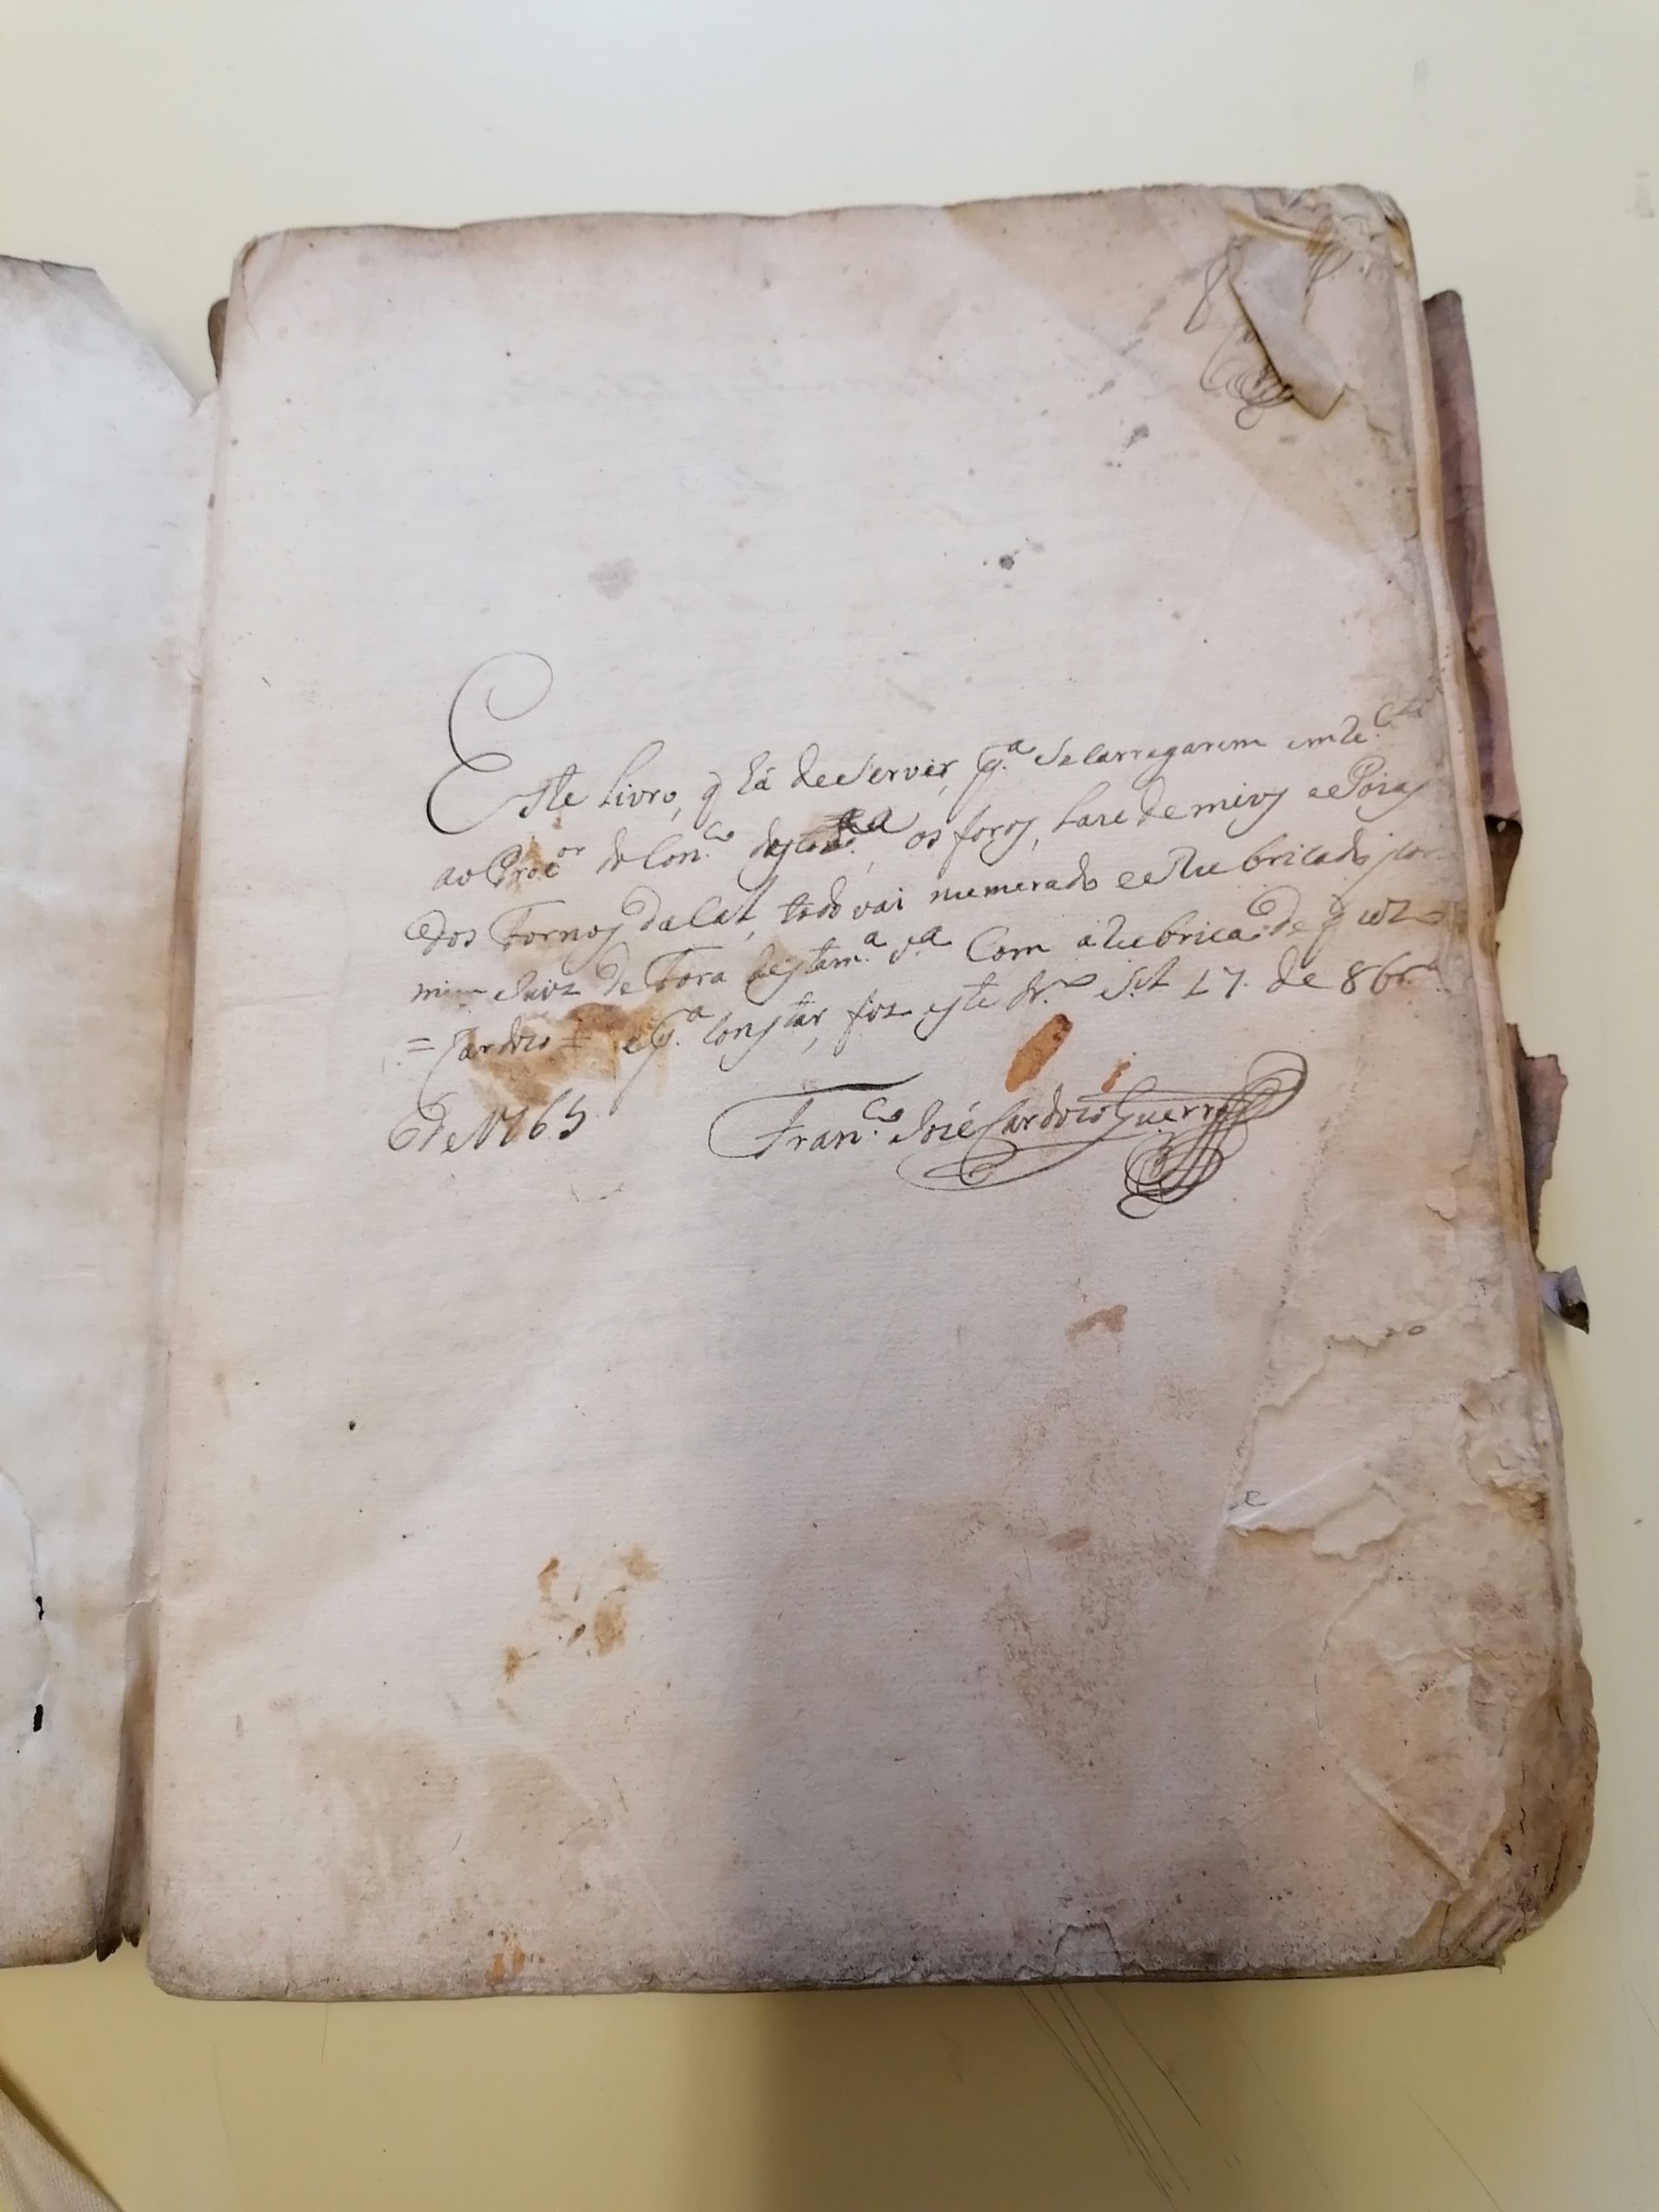 Este Livro, q̃ há de Servir, p.ª Se Carregarem em Re.ᶜᵗᵃ
ao Proc.ᵒʳ do Con.ᶜᵒ desta V.ª, os foros, e Poias
dos Fornos da Cal, todo vai numerado e Rubricado por
mim Juiz de Fora desta m.ª V.ª Com a Rubrica de q̃ uzo
= Cardozo = e p.ª Constar, fiz este Set 17. de 8br.º
de 1765
Fran.ᶜᵒ José Cardozo Guerra